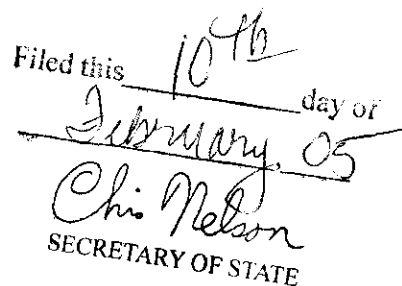 Filed this 10th day of
February, 05
Chris Nelson
SECRETARY OF STATE